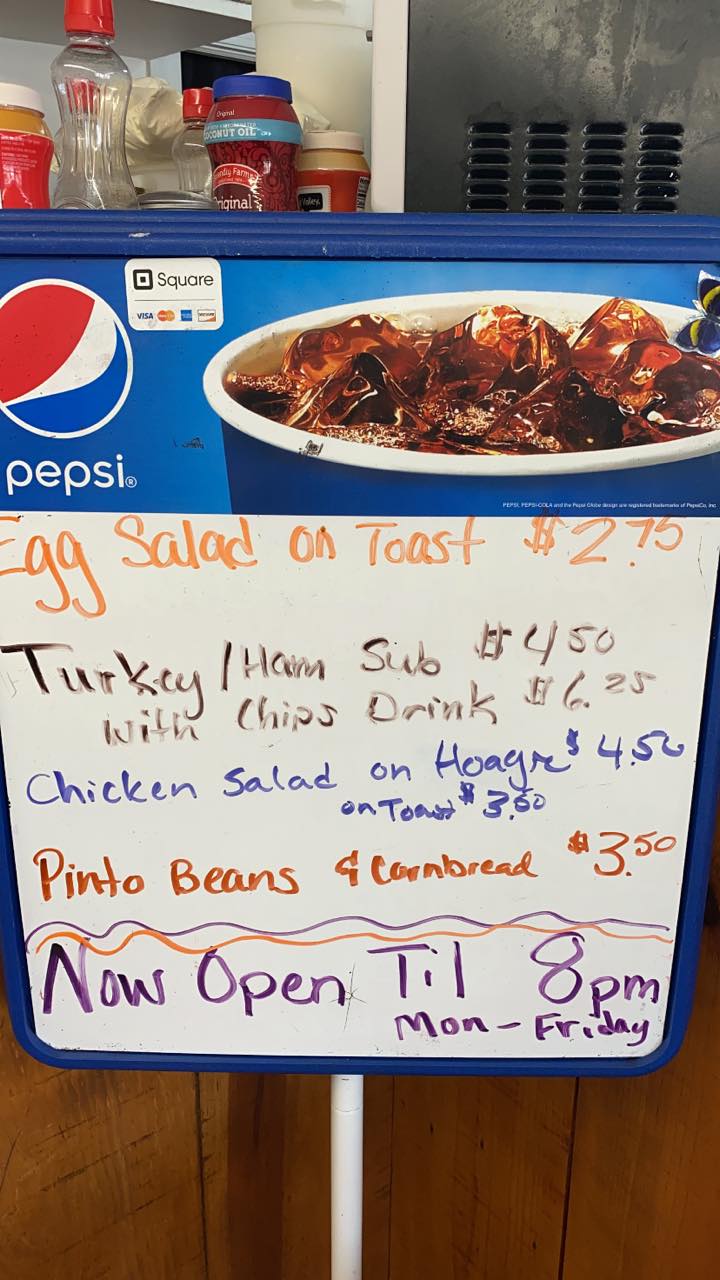 Original
COCONUT OIL
Original
Valley.
Square
VISA
pepsi®
PEPSI, PEPSI-COLA and the Pepsi Globe design are registered trademarks of PepsiCo, Inc.
Egg Salad on Toast $2.75
Turkey/Ham Sub $4.50
with Chips Drink $6.25
Chicken Salad on Hoagie $4.50
on Toast $3.50
Pinto Beans & Cornbread $3.50
Now Open Til 8pm
Mon-Friday